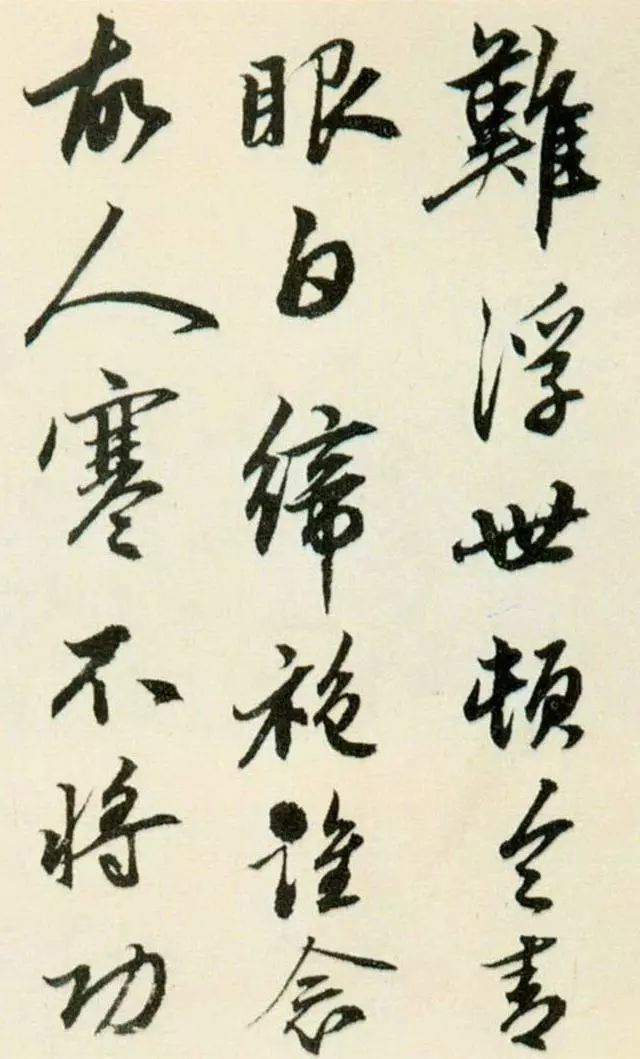 難浮世頓令青
眼白綈袍誰念
故人寒不將功